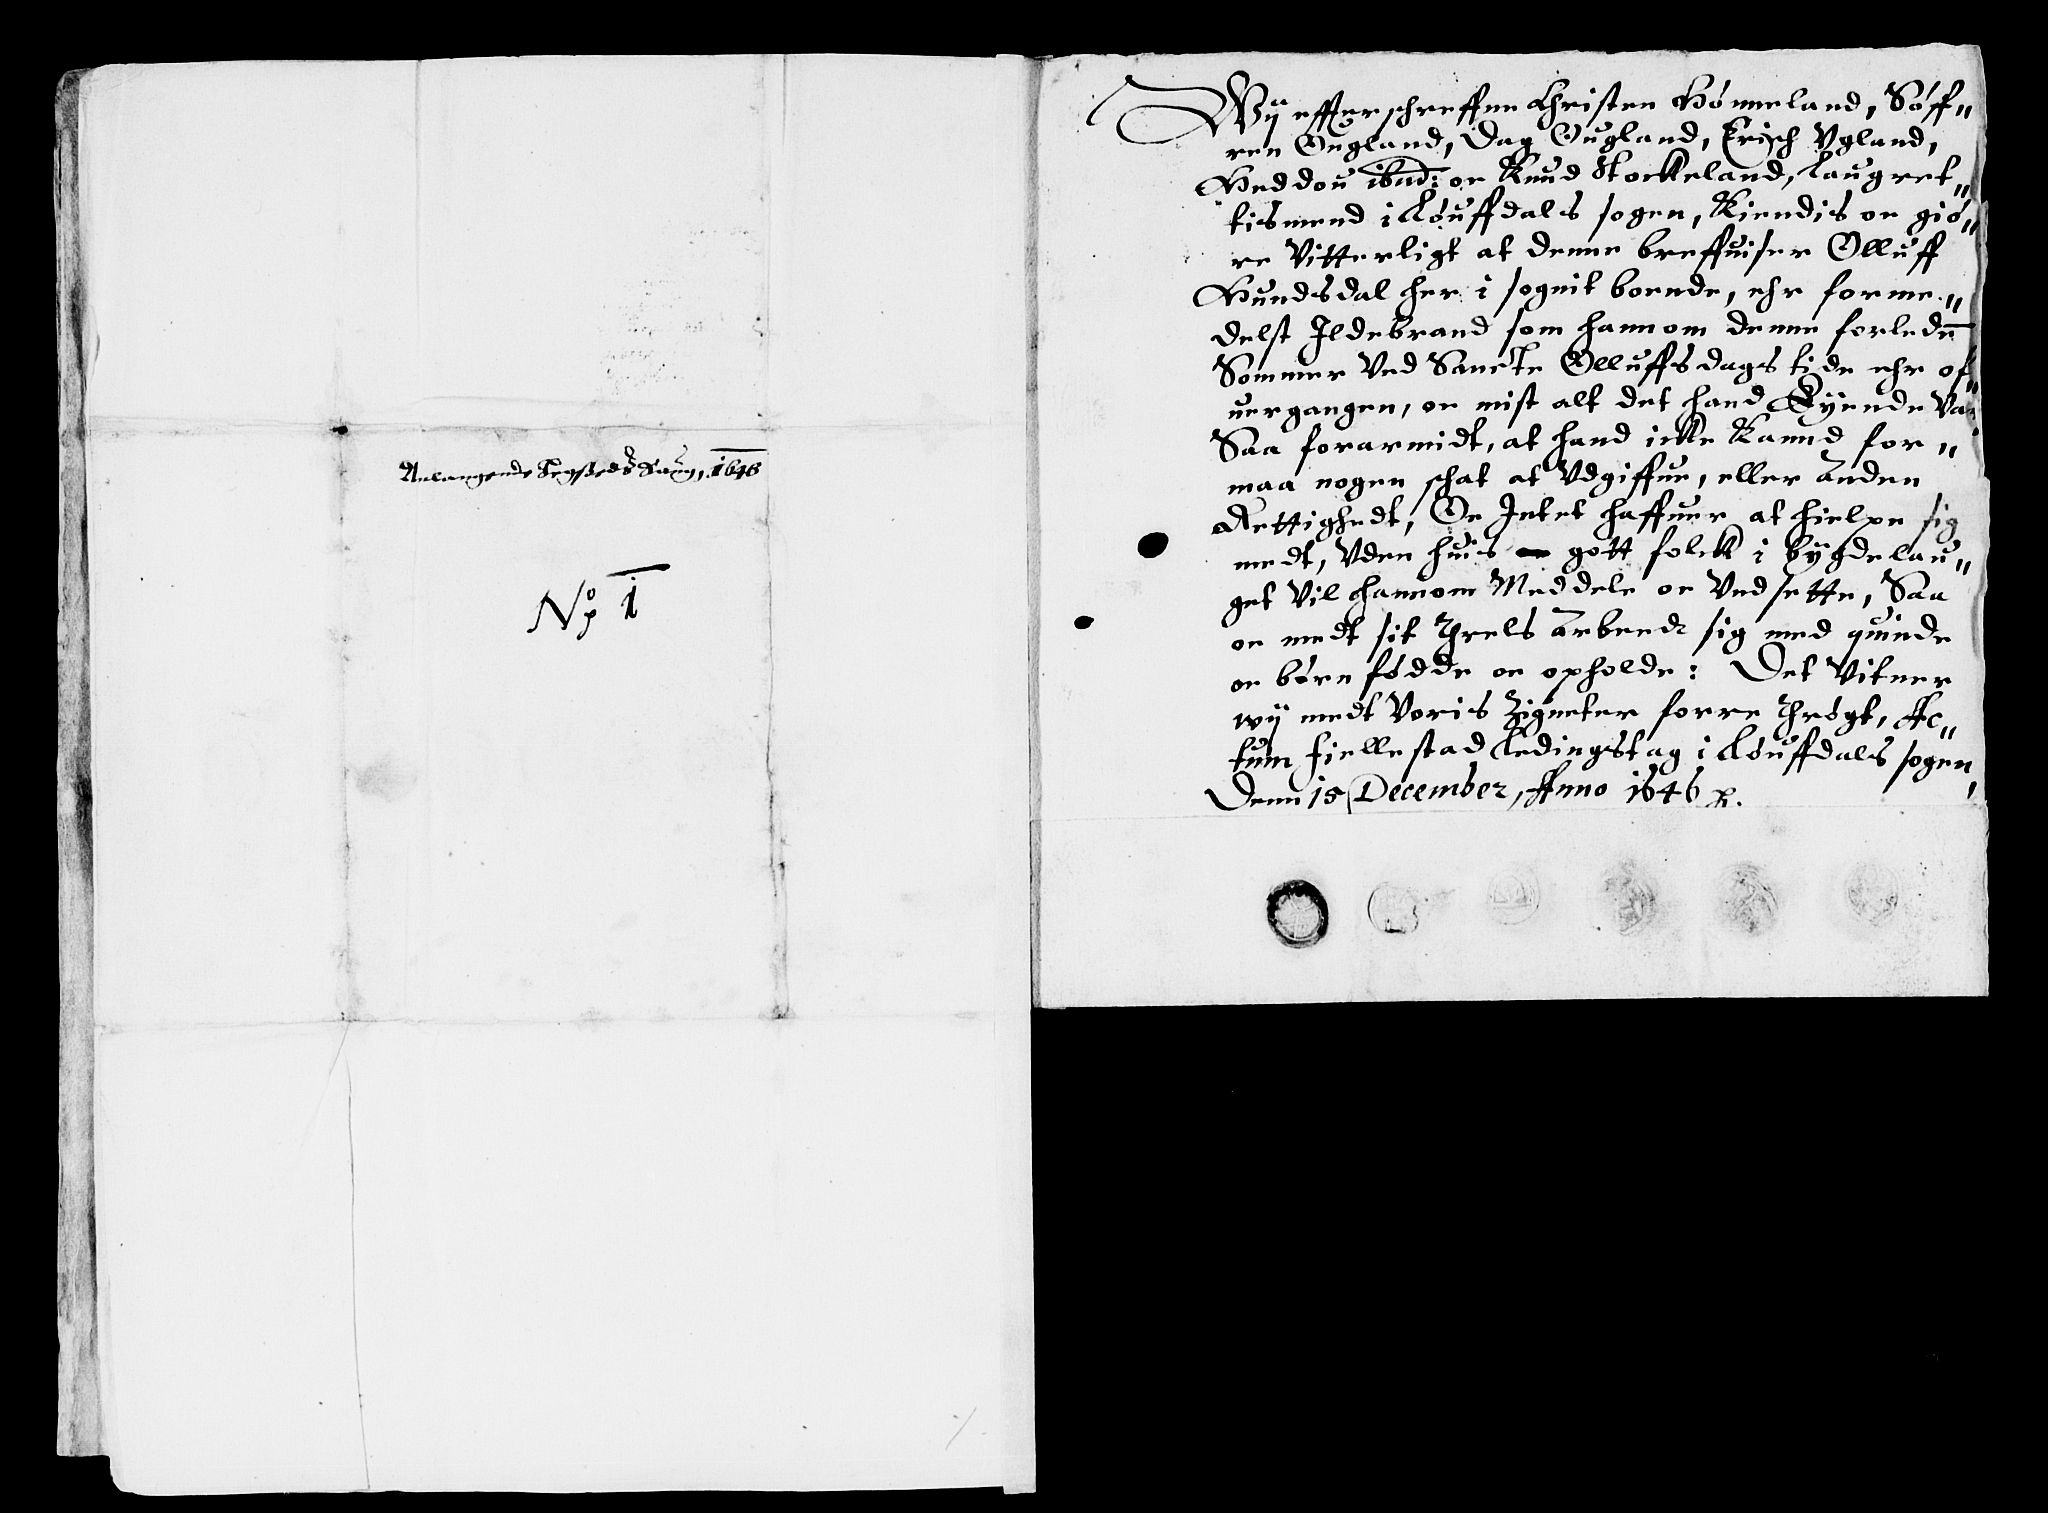 Anlangende Sougn, 1646
No 1
Wÿ effterschreffne Christen Hömerland, Söff„
ren Ougland, Dag Ougland, Erich Vgland,
Heddou ibid: oc Knud Stockeland, Laugret„
tismend i Löuffdals sogen, Kiendis oc giö„
re Vitterligt at denne breffuiser Olluff
Hundsdal her i sognit boende, ehr forme„
delst Ildebrand som hannom denne forleden
Sommer Ved Sancte Olluffs dags tide ehr of„
uergangen, oc mist alt det hand Eÿende Var
Saa forarmidt, at hand icke Kannd for„
maa nogen schat at Vdgiffue, eller anden
Rettighedt, Oc Intet haffuer at hielpe sig
medt, Vden huis gott folck i bÿgdelau„
get Vil hannom Meddele oc Vndsette, Saa
oc medt sit Threls Arbeude sig med quinde
oc börn födde oc opholde: Det Vitner
wÿ medt Voris Zigneter forre Thrögt, Ac„
tum Fiellestad Ledingstag i Löuffdals sogen,
Denn 15 December, Anno 1646